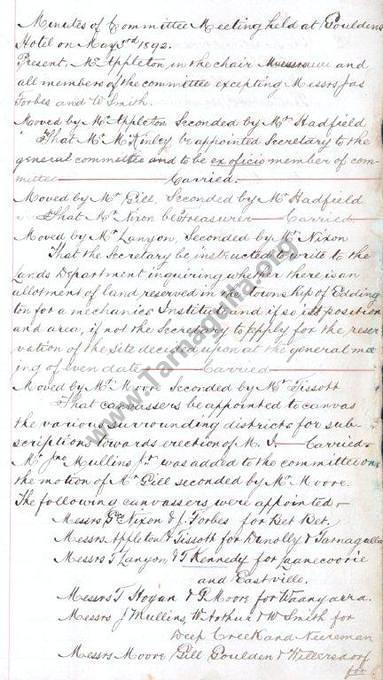 Minutes of Committee Meeting held at Poulden's
Hotel on May 3rd 1892.
Present, Mr Appleton in the chair and
all members of the committee excepting Messrs Jas
Forbes and W Smith.
Moved by Mr Appleton Seconded by Mr Hadfield
That Mr McKinley be appointed Secretary to the
general committee and to be ex oficio member of com-
mittee Carried.
Moved by Mr Gill, Seconded by Mr Hadfield
That Mr Nixon be Treasurer Carried
Moved by Mr Lanyon, Seconded by Mr Nixon
That the Secretary be instructed to write to the
Lands Department inquiring whether there is an
allotment of land reserved in the Township of Edding-
ton for a mechanics Institute and if so its position
and area, if not the Secretary to apply for the reser-
vation of the site decided upon at the general me
ing of even date Carried
Moved by Mr Moore Seconded by Mr Tissott
That canvassers be appointed to canvas
the various surrounding districts for sub-
scriptions towards erection of M. I. Carried
Mr Jno Mullins Jr was added to the committee on
the motion of Mr Gill seconded by Mr Moore.
The following canvassers were appointed
Messrs Nixon & J. Forbes for Bet Bet.
Messrs Appleton & Tissott for Dunolly & Tarnagulla
Messrs T Lanyon & T Kennedy for Laanecoorie
and Eastville.
Messrs T Hogan & T Moore for Waanyarra.
Messrs J Mullins W Arthur & W Smith for
Deep Creek and Neereman
Messrs Moore Gill Poulden & Wittersdorf
for
www.Tarnagulla.org